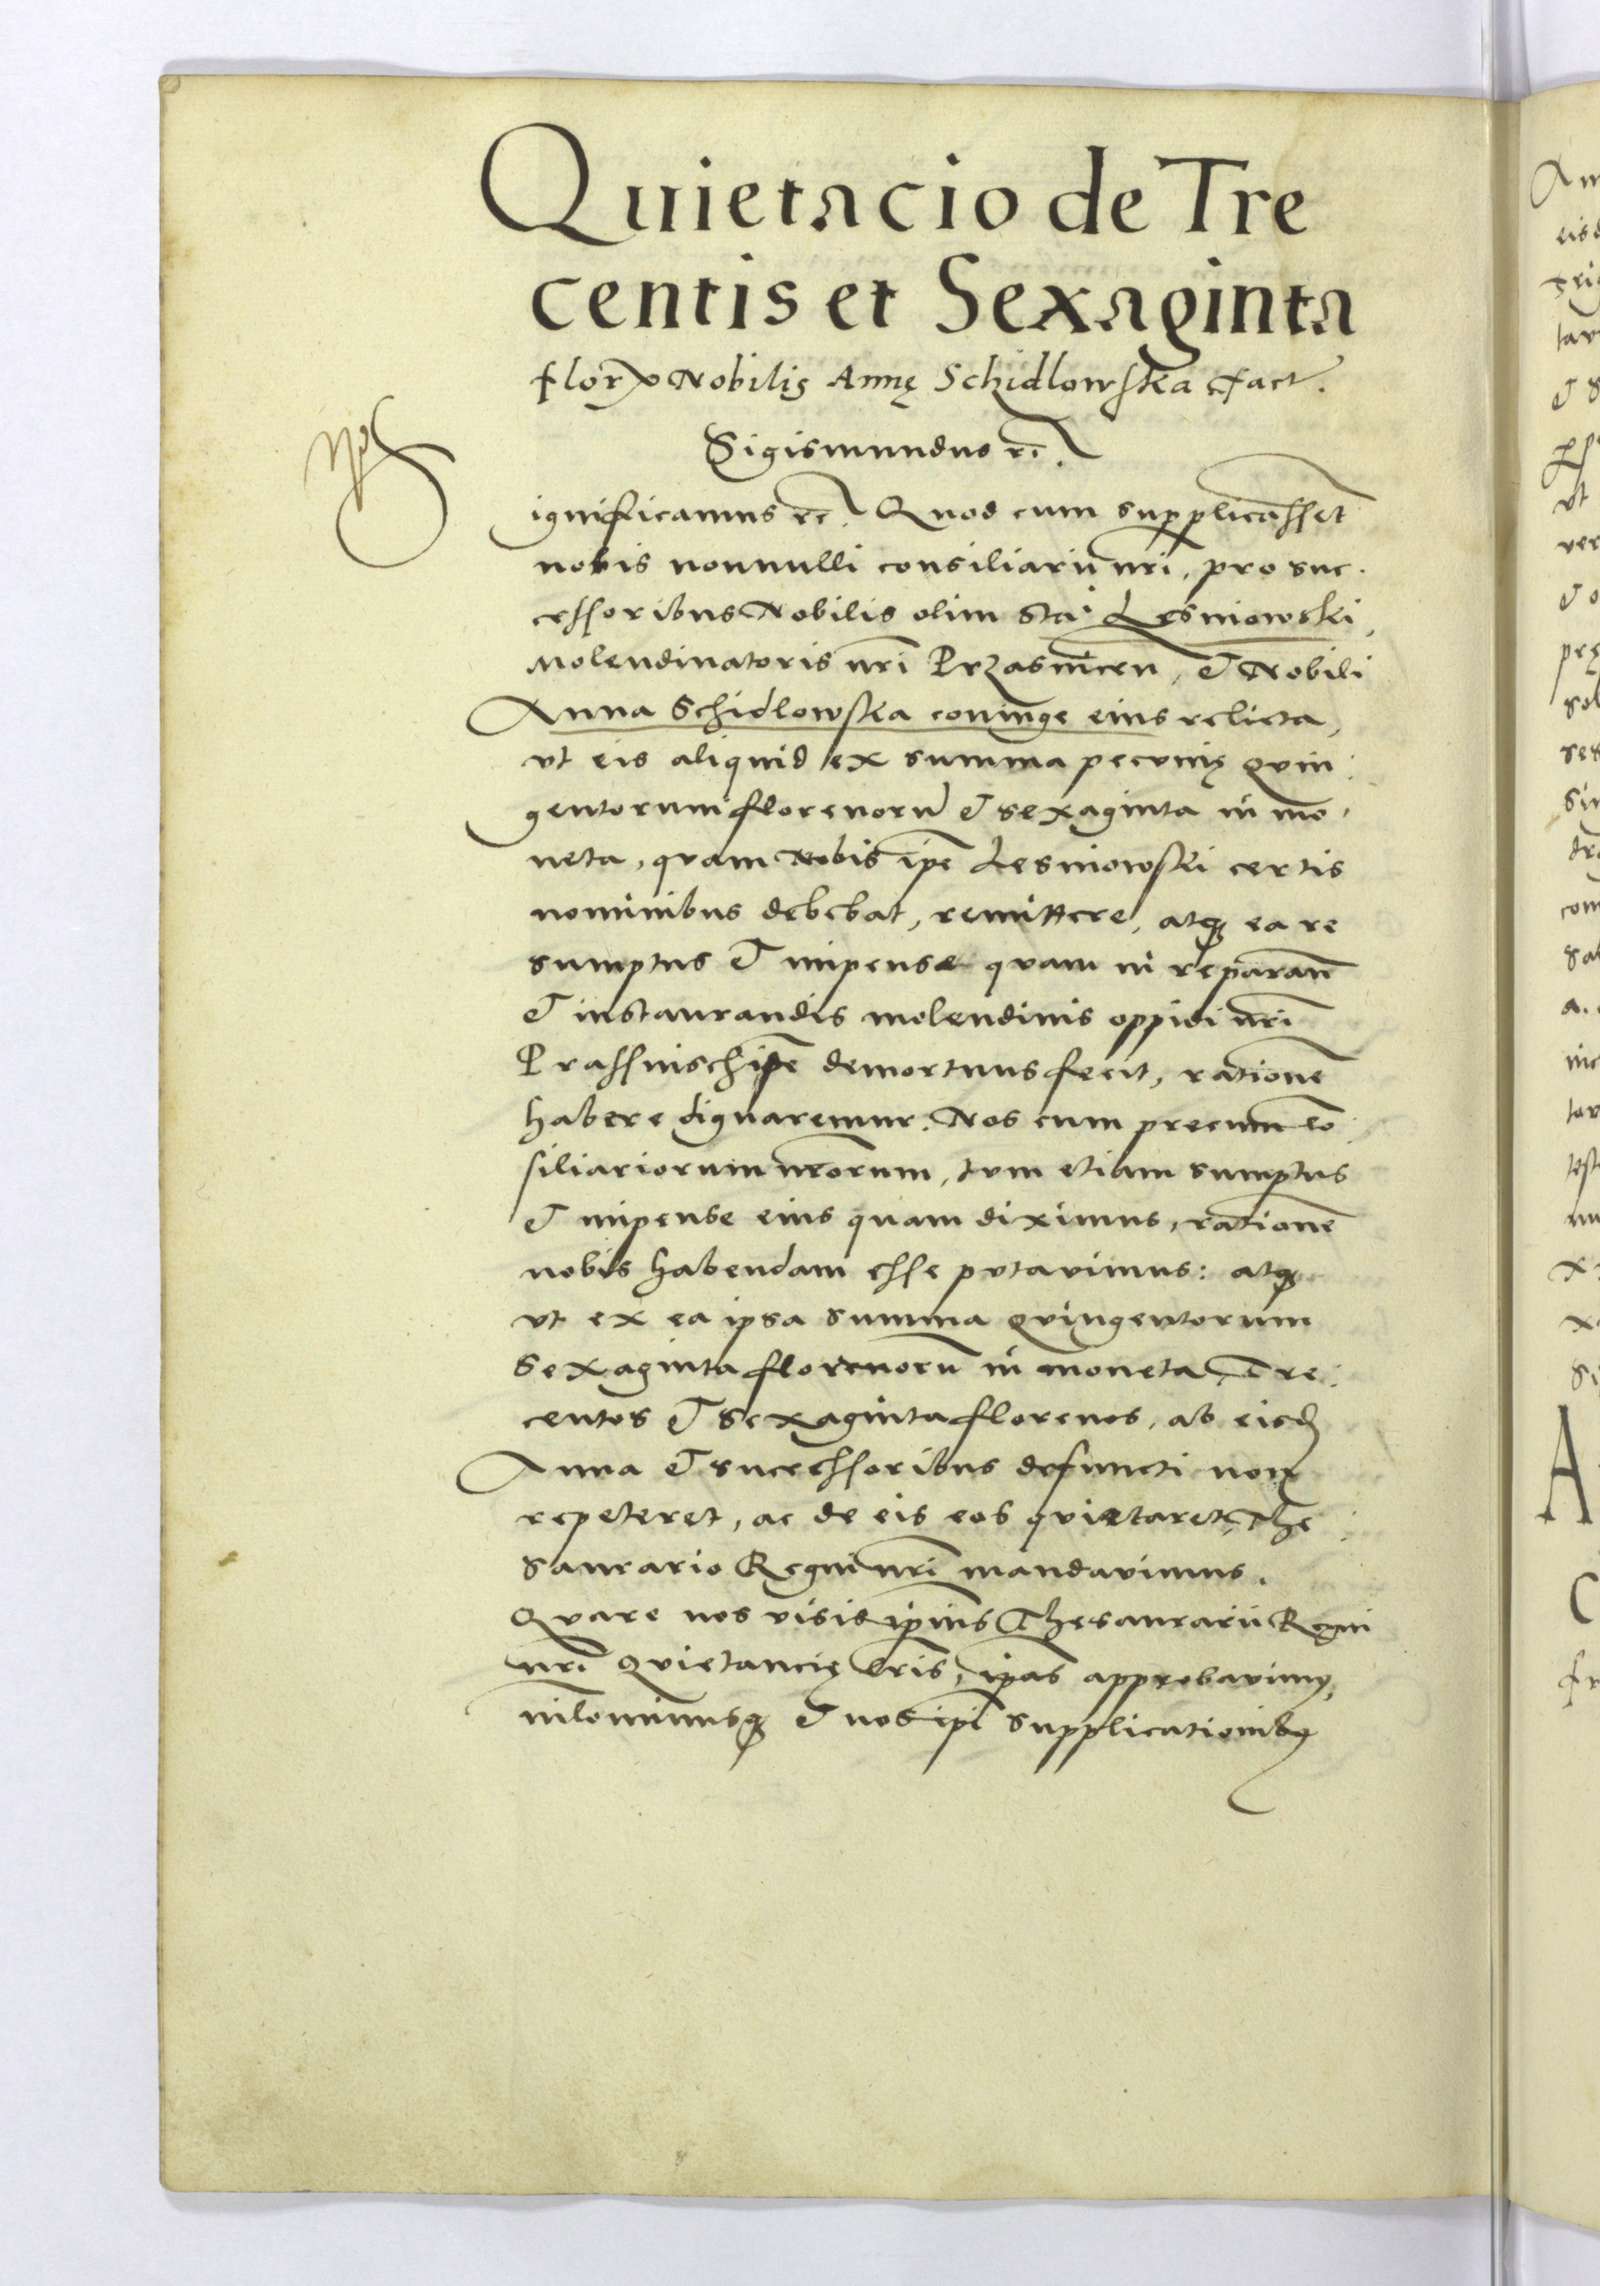 Quietacio de Tre
centis et Sexaginta
flor Nobilis Annę Schidlowska fact.
Sigismundus rc.
ignificamus rc. Quod cum supplicassēt
nobis nonnulli consiliarii nrī, pro suc
cessoribus Nobilis olim Sta: Lesniowski,
Molendinatoris nrī Przasnīcen, et Nobili
Anna Schidlowska coniuge eius relicta,
vt eis aliquid ex summa pecunię quin
gentorum florenorū et sexaginta in mo
neta, quam Nobis ipē Lesniowski certis
nominibus debebat, remittere, atq ea re
sumptus et impense quam in reparan̄
et instaurandis molendinis oppidi nrī
Prassnisch ipē demortuus fecit, rationē
habere dignaremur. Nos cum precum cō
siliariorum nrōrum, tum etiam sumptus
et impense eius quam diximus, rationē
nobis habendam esse putavimus: atq
vt ex ea ipsa summa quingentorum
sexaginta florenorū in moneta, Tre
centos et sexaginta florenos, ab eisd
Anna et successoribus defuncti non
repeteret, ac de eis eos quietaret, The
saurario Regni nrī mandavimus.
Quare nos visis ipīus Thesaurarii Regni
nrī quietancię lrīs, ipās approbavimq,
nīlominusq et nos ipī supplicationibq
Am
eisd
trig
tav
et s
vt
ver
et o
pre
sol
ses
sin
com
sal
a.
inc
tav
test
nu
x
x
si
A
C
fr